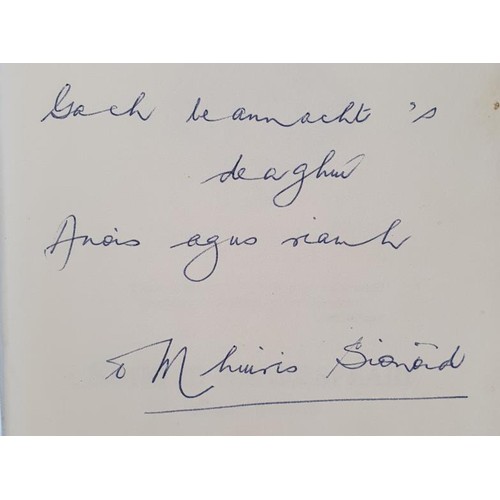 Gach beannacht 's
deaghuí
Anois agus riamh
ó Mhuiris Sionóid